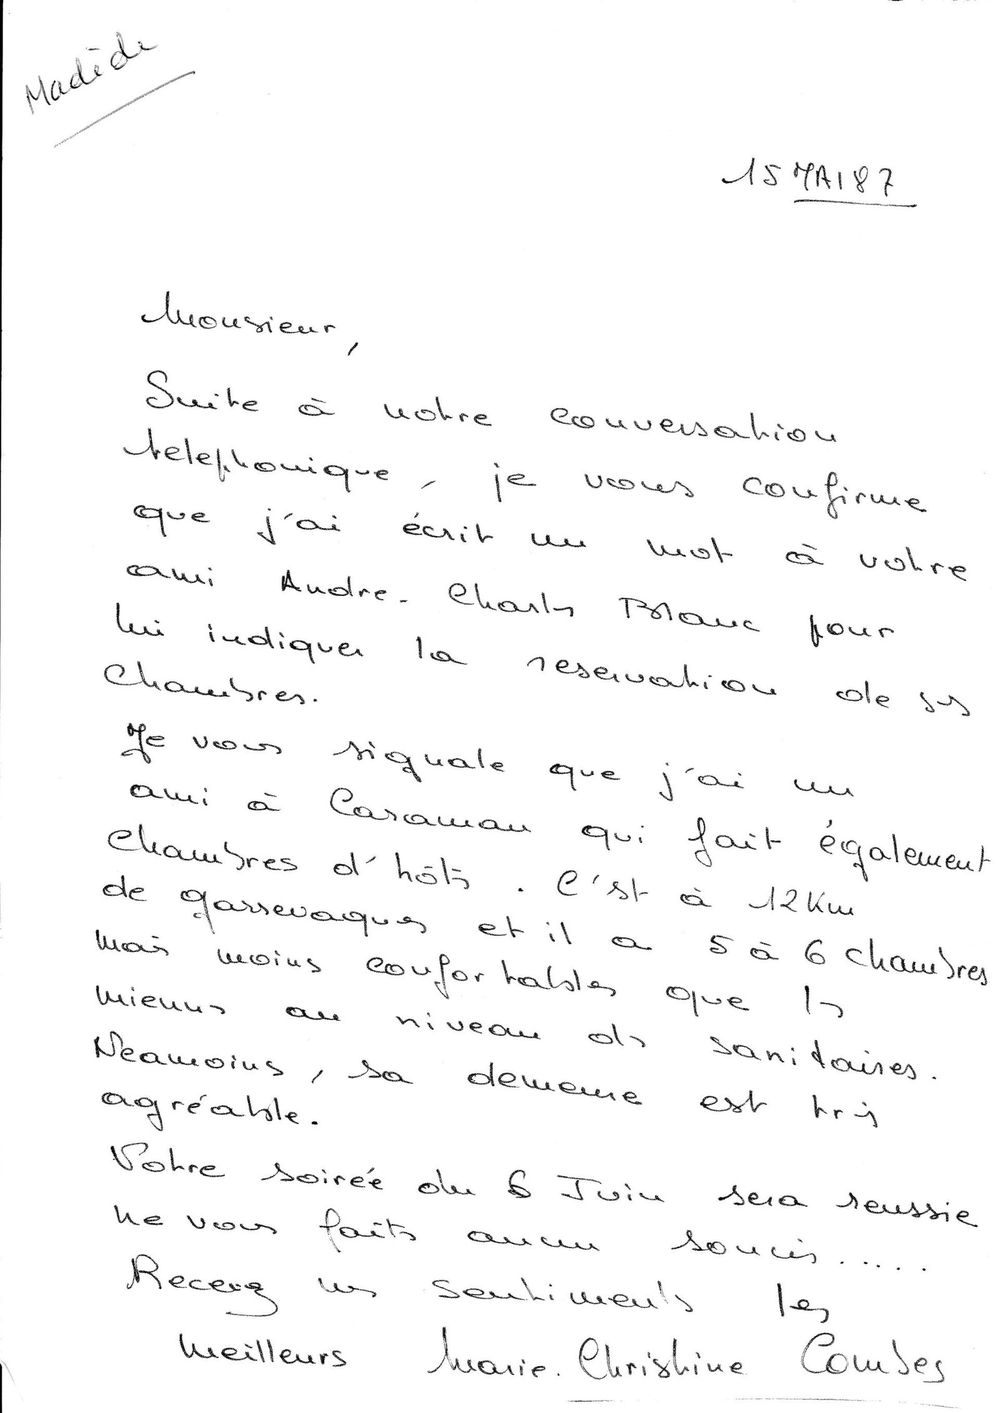 Madède
15 MAI 87
Monsieur,
Suite à notre conversation
telephonique, je vous confirme
que j'ai écrit un mot à votre
ami Andre-Charles Blanc pour
lui indiquer la reservation de ses
Chambres.
Je vous signale que j'ai un
ami à Caraman qui fait également
Chambres d'hôtes. C'est à 12 Km
de garrevaques et il a 5 à 6 chambres
mais moins confortables que les
miennes au niveau des sanitaires.
Neamoins, sa demeure est très
agréable.
Votre soirée du 6 Juin sera reussie
ne vous faites aucun soucis.....
Recevez mes sentiments les
meilleurs Marie-Christine Combes